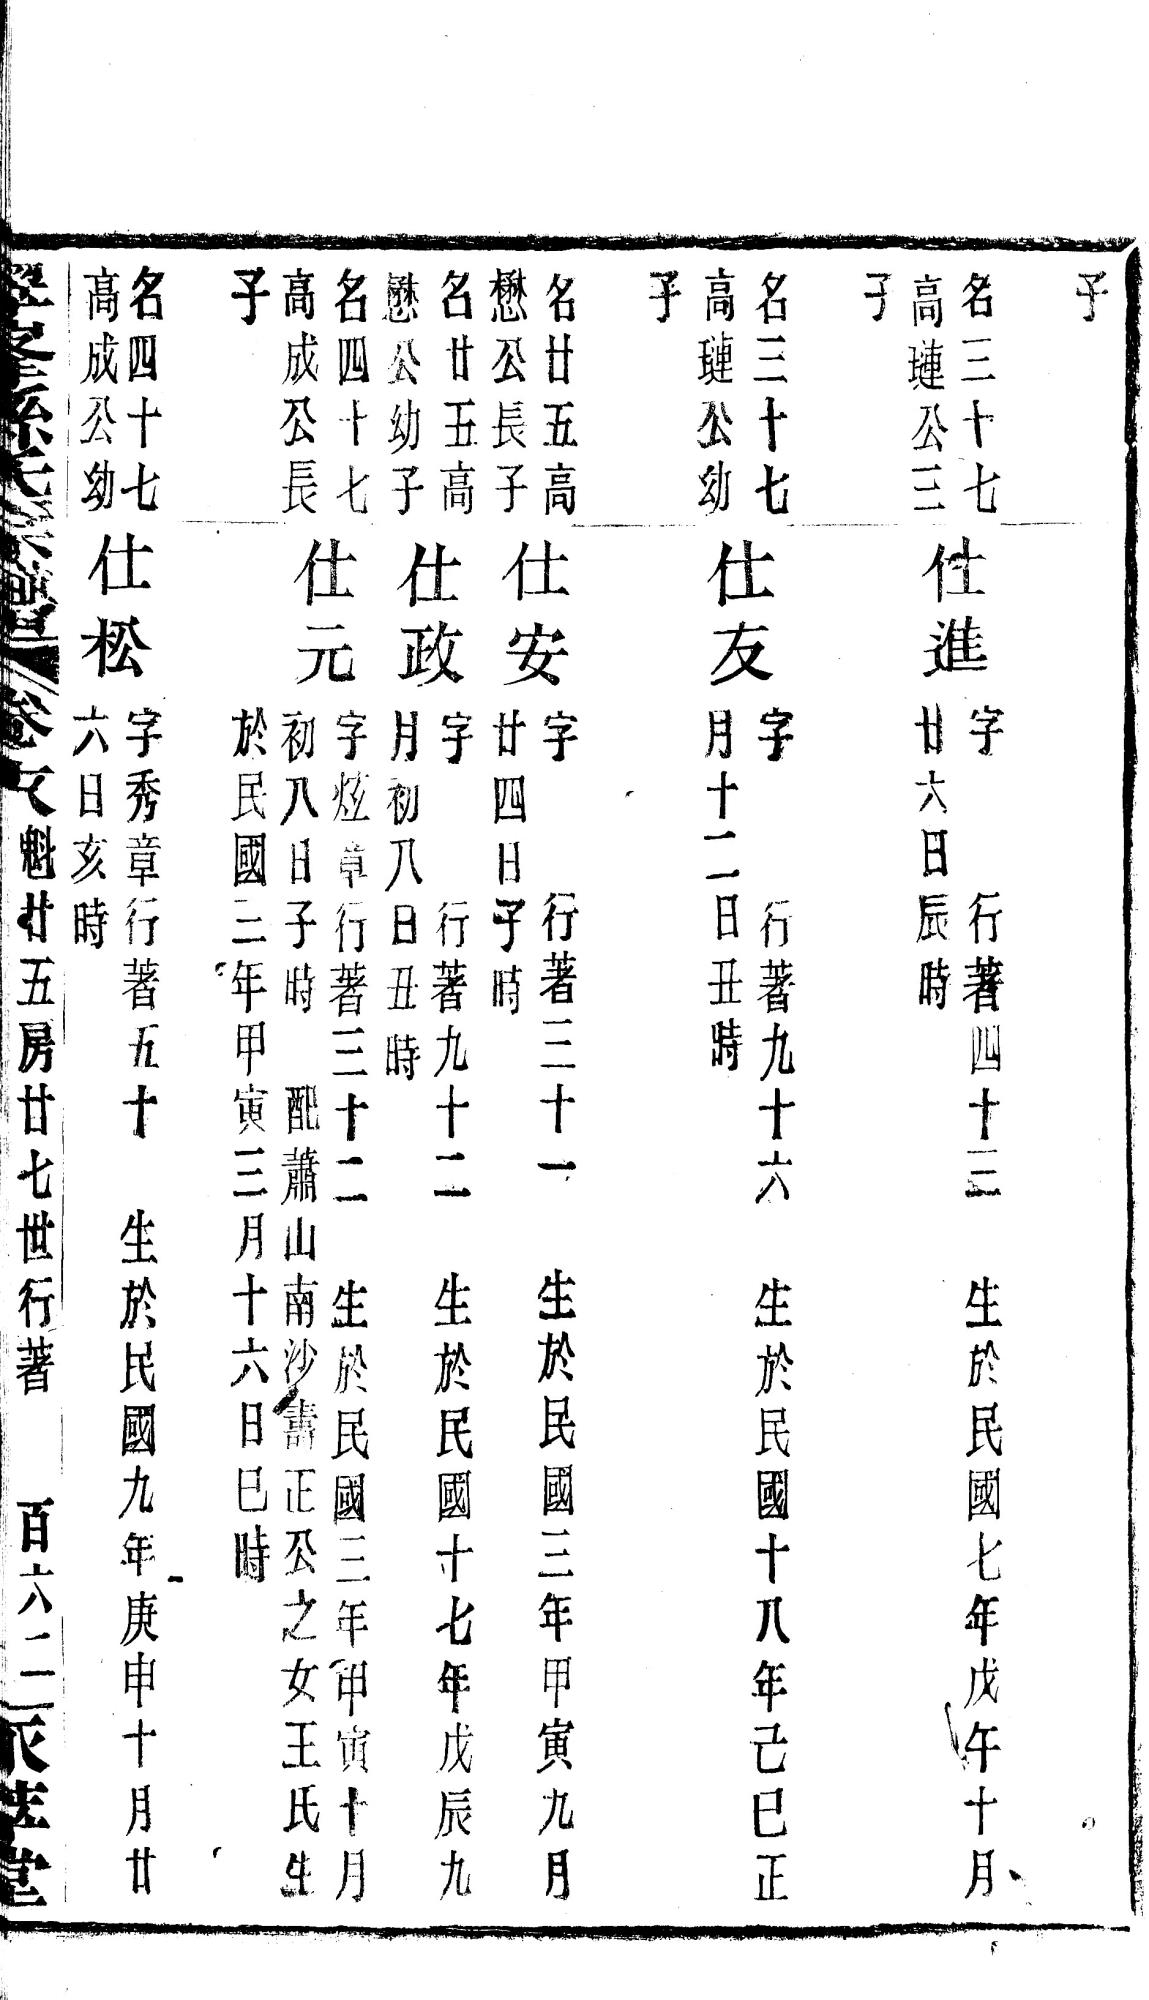 子
名三十七
高璉公三
子
仕進
字 行著四十三 生於民國七年戊午十月
廿六日辰時
名三十七
高璉公幼
子
仕友
字 行著九十六 生於民國十八年己巳正
月十二日丑時
名廿五高
懋公長子
仕安
字 行著三十一 生於民國三年甲寅九月
廿四日子時
名廿五高
懋公幼子
仕政
字 行著九十二 生於民國十七年戊辰九
月初八日丑時
名四十七
高成公長
子
仕元
字炫章行著三十二 生於民國三年甲寅十月
初八日子時 配蕭山南沙壽正公之女王氏生
於民國三年甲寅三月十六日巳時
名四十七
高成公幼
仕松
字秀章行著五十 生於民國九年庚申十月廿
六日亥時
孫氏宗譜 卷 魁廿五房廿七世行著 百六二 堂